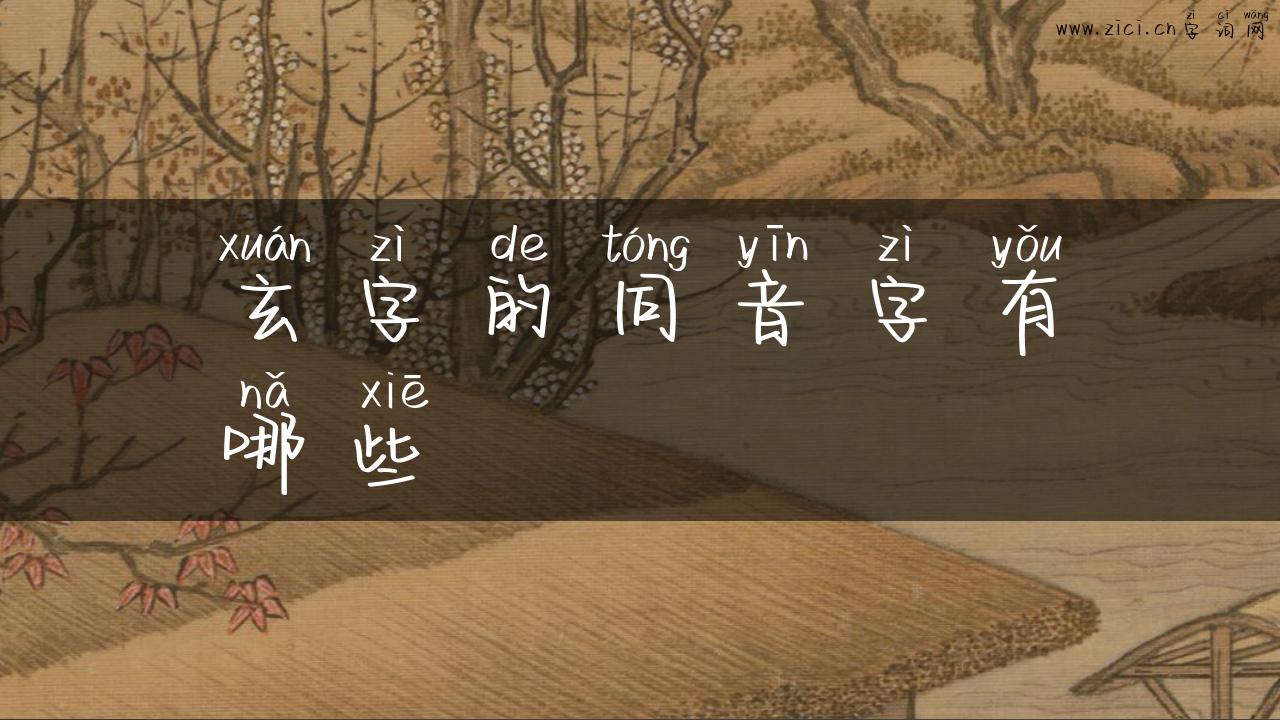 zì cí wǎng
www.zici.cn字词网
xuán zì de tóng yīn zì yǒu
玄字的同音字有
nǎ xiē
哪些